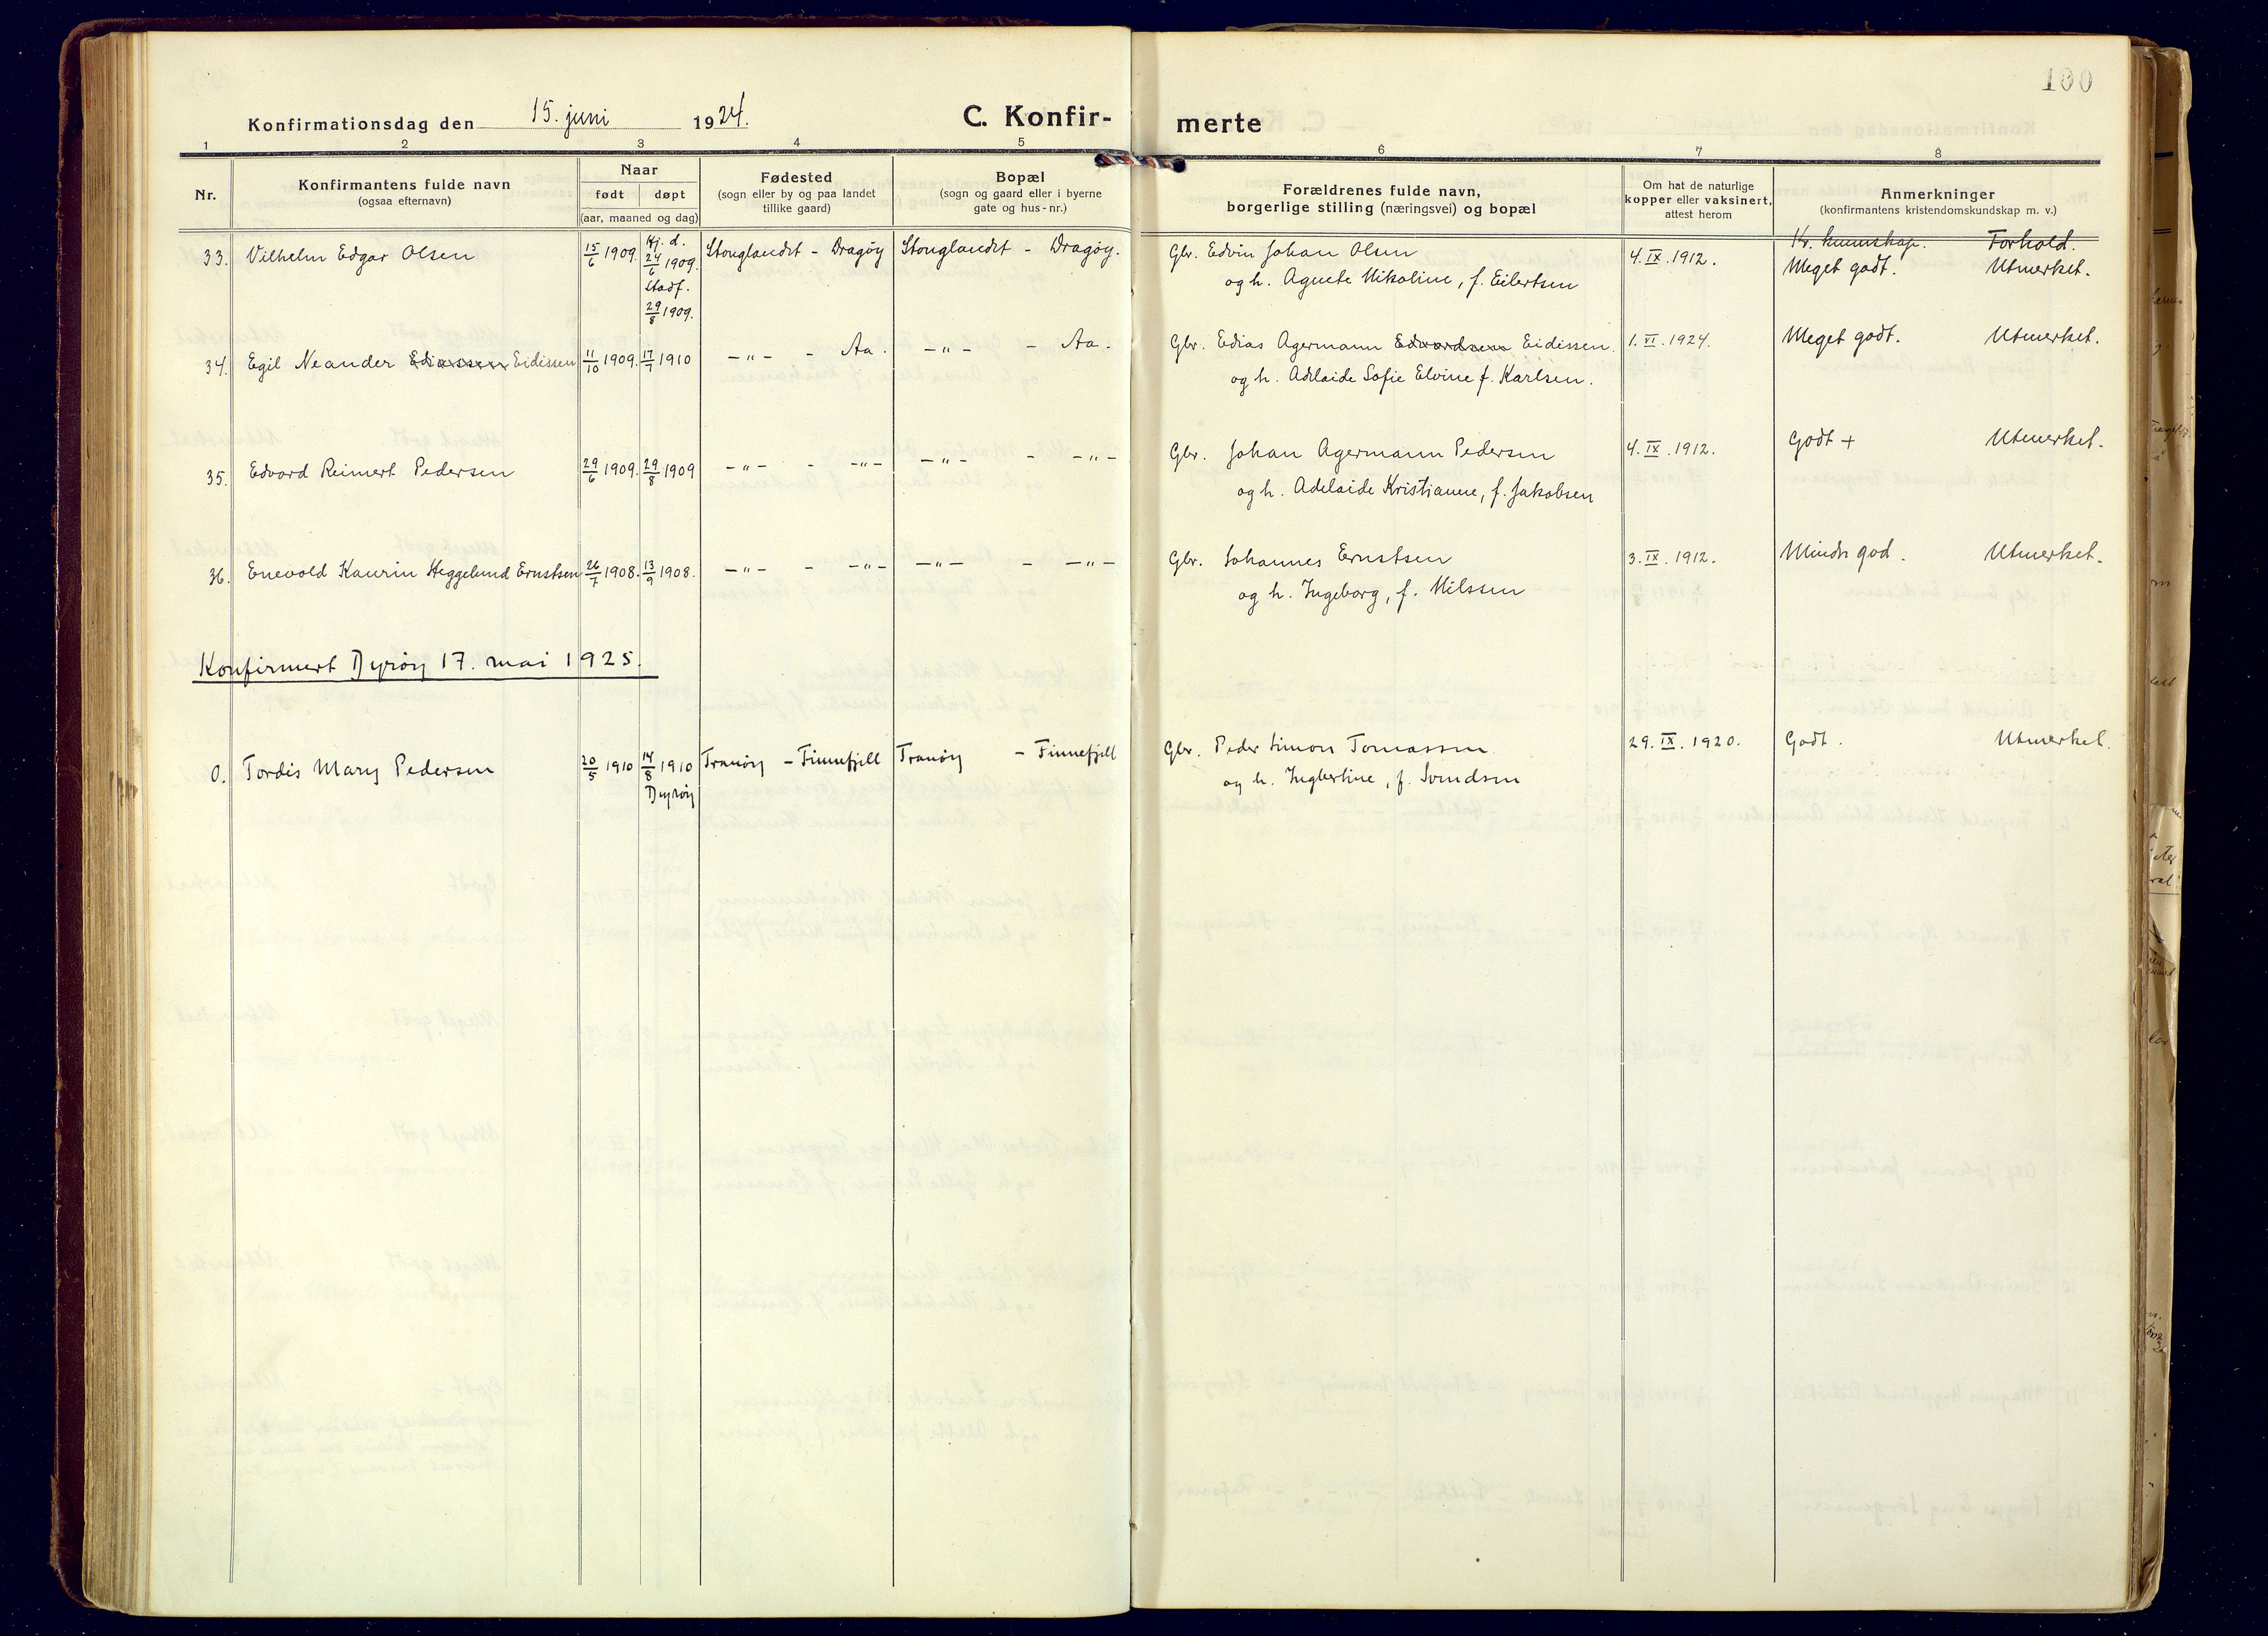 100
Konfirmationsdag den 15. juni 1924.
C. Konfirmerte
1 2 3 4 5 6 7 8
Nr.
Konfirmantens fulde navn
(ogsaa efternavn)
Naar
født døpt
(aar, maaned og dag)
Fødested
(sogn eller by og paa landet
tillike gaard)
Bopæl
(sogn og gaard eller i byerne
gate og hus-nr.)
Forældrenes fulde navn,
borgerlige stilling (næringsvei) og bopæl
Om hat de naturlige
kopper eller vaksinert,
attest herom
Anmerkninger
(konfirmantens kristendomskundskap m. v.)
Kr. kunnskap. Forhold.
33. Vilhelm Edgar Olsen 15/6 1909. Hj. d. 24/6 1909. Stadf. 29/8 1909. Stonglandet - Dragøy Stonglandet - Dragøy. Gbr. Edvin Johan Olsen 4. IX. 1912. Meget godt. Utmerket.
og h. Agnete Nikoline, f. Eilertsen
34. Egil Neander Ediassen Eidissen 11/10 1909. 17/7 1910 -"- - Aa. -"- - Aa. Gbr. Edias Agermann Edvardsen Eidissen. 1. VI. 1924. Meget godt. Utmerket.
og h. Adelaide Sofie Elvine f. Karlsen.
35. Edvard Reimert Pedersen 29/6 1909. 29/8 1909 -"- - -"- -"- - -"- Gbr. Johan Agermann Pedersen 4. IX. 1912. Godt + Utmerket.
og h. Adelaide Kristianne, f. Jakobsen
36. Enevold Kaurin Heggelund Ernstsen 26/7 1908. 13/9 1908. -"- - -"- -"- - -"- Gbr. Johannes Ernstsen 3. IX. 1912. Mindre god. Utmerket.
og h. Ingeborg, f. Nilssen
Konfirmert Dyrøy 17. mai 1925.
0. Tordis Mary Pedersen 20/5 1910 14/8 1910 Dyrøy Tranøy - Finnefjell Tranøy - Finnefjell Gbr. Peder Simon Tomassen 29. IX. 1920. Godt. Utmerket.
og h. Ingbertine, f. Svendsen